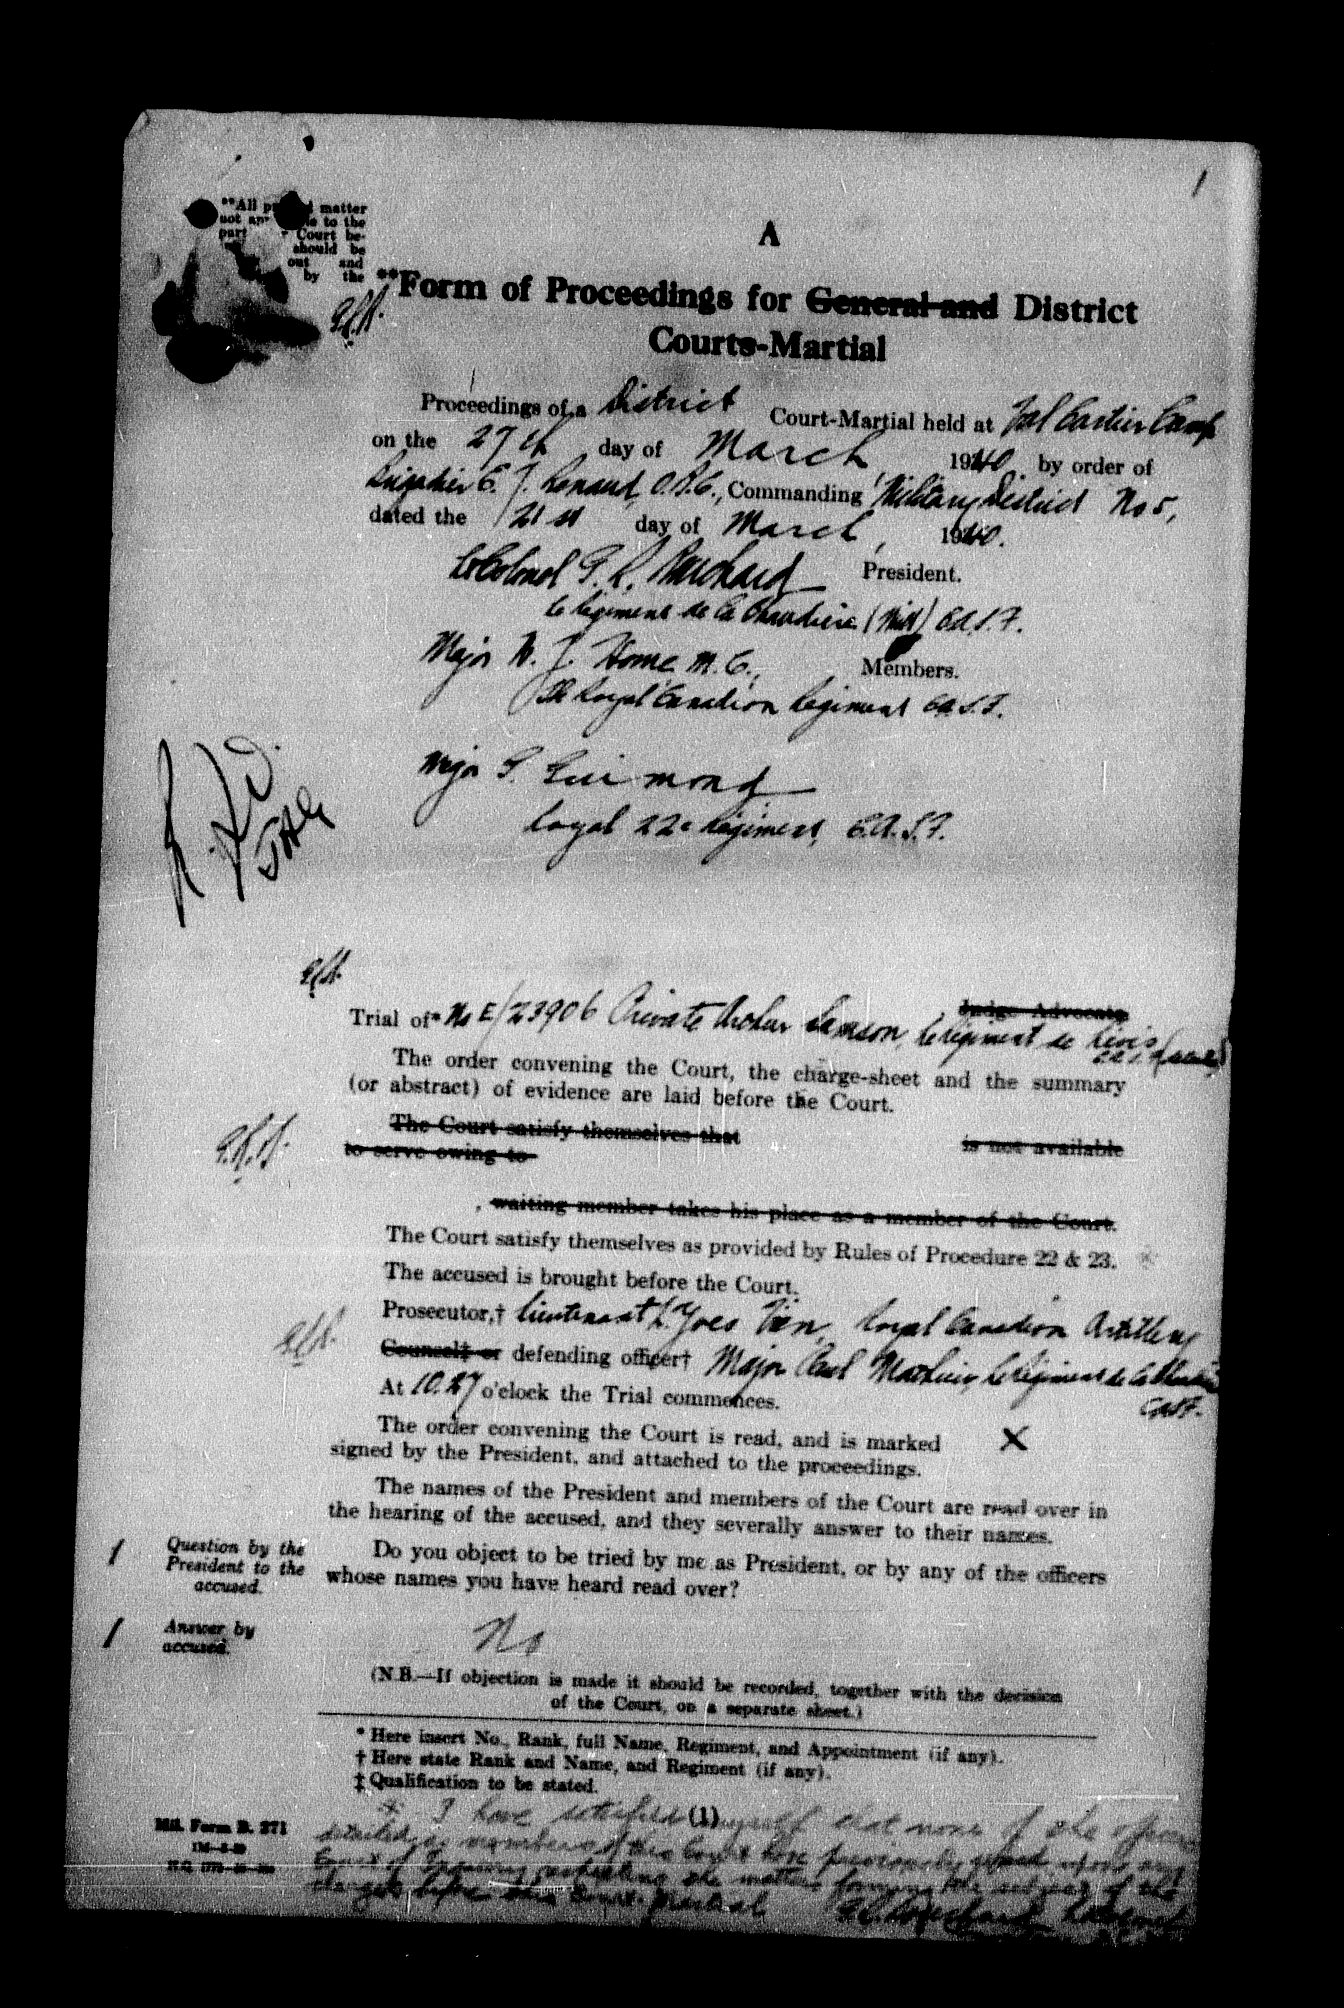 1
**All matter
not to the
part Court be-
should be
out and
by the
A
**Form of Proceedings for General and District
Courts-Martial
Proceedings of a District Court-Martial held at Val Cartier Camp
on the 27th day of March, 1940 by order of
Brigadier E. J. Renaud, Commanding Military District No 5,
dated the 21st day of March, 1940.
Lt Colonel President.
Le Régiment de la Chaudière C.A.S.F.
Major Home M.C., Members.
The Royal Canadian Regiment C.A.S.F.
Major Guimond
Royal 22e Régiment, C.A.S.F.
JAG
Judge Advocate
Trial of* No E/23906 Private Arthur Samson, Le régiment de Lévis
The order convening the Court, the charge-sheet and the summary
(or abstract) of evidence are laid before the Court.
The Court satisfy themselves that is not available
to serve owing to
, waiting member takes his place as a member of the Court.
The Court satisfy themselves as provided by Rules of Procedure 22 & 23.
The accused is brought before the Court.
Prosecutor,† Lieutenant L. Yves Vien, Royal Canadian Artillery
Counsel‡ or defending officer† Major Paul Mathieu, Le régiment de la Chaudière
CASF.
At 10.27 o'clock the Trial commences.
The order convening the Court is read, and is marked X
signed by the President, and attached to the proceedings.
The names of the President and members of the Court are read over in
the hearing of the accused, and they severally answer to their names.
1 Question by the
President to the
accused.
Do you object to be tried by me as President, or by any of the officers
whose names you have heard read over?
1 Answer by
accused.
No
(N.B.—If objection is made it should be recorded, together with the decision
of the Court, on a separate sheet.)
* Here insert No., Rank, full Name, Regiment, and Appointment (if any).
† Here state Rank and Name, and Regiment (if any).
‡ Qualification to be stated.
(1)
Mil. Form B. 271
* I have satisfied myself that none of the officers
detailed as members of this Court have previously upon any
Court of Inquiry respecting the matters forming the subject of the
charges before this Court-Martial